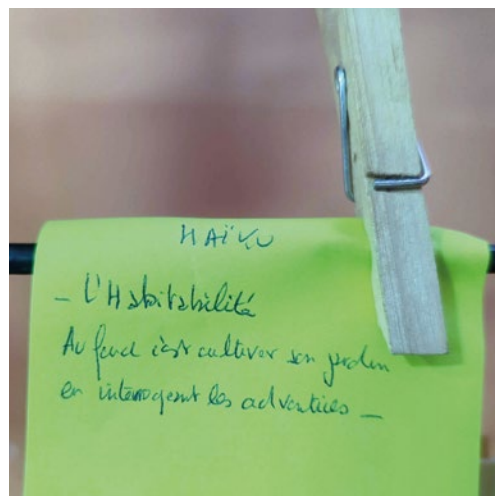 HAÏKU
- L'Habitabilité
Au fond c'est cultiver son jardin
en interrogeant les adventices -